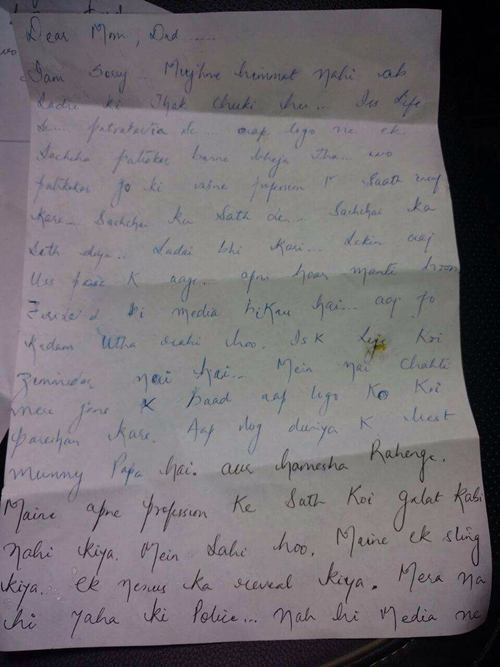 Dear Mom, Dad .....
I am sorry .. Mujhme himmat nahi ab
Ladne ki Thak chuki hu... Is life
Se... patrakarita se ... aap logo ne ek
Sachcha patrakar banne bheja tha... wo
patrakar jo ki apne profession k saath
kare... Sachchai ka Sath de... Sachchai ka
Sath diya.. Ladai bhi Kari... Lekin aaj
Uss K aage.. apni haar manti hoon
ki media bikau hai... aaj jo
Kadam Utha rahi hoo. Is K liye Koi
Zimmedar nai hai... Mein nai Chahti
mere jane K Baad aap logo Ko Koi
pareshan Kare. Aap log duniya K best
Mummy Papa hai. aur hamesha Rahenge.
Maine apne profession Ke Sath Koi galat Kabi
Nahi kiya. Mein Sahi hoo. Maine ek sting
kiya. ek nexus ka reveal kiya. Mera na
hi yaha ki Police... nah hi Media ne